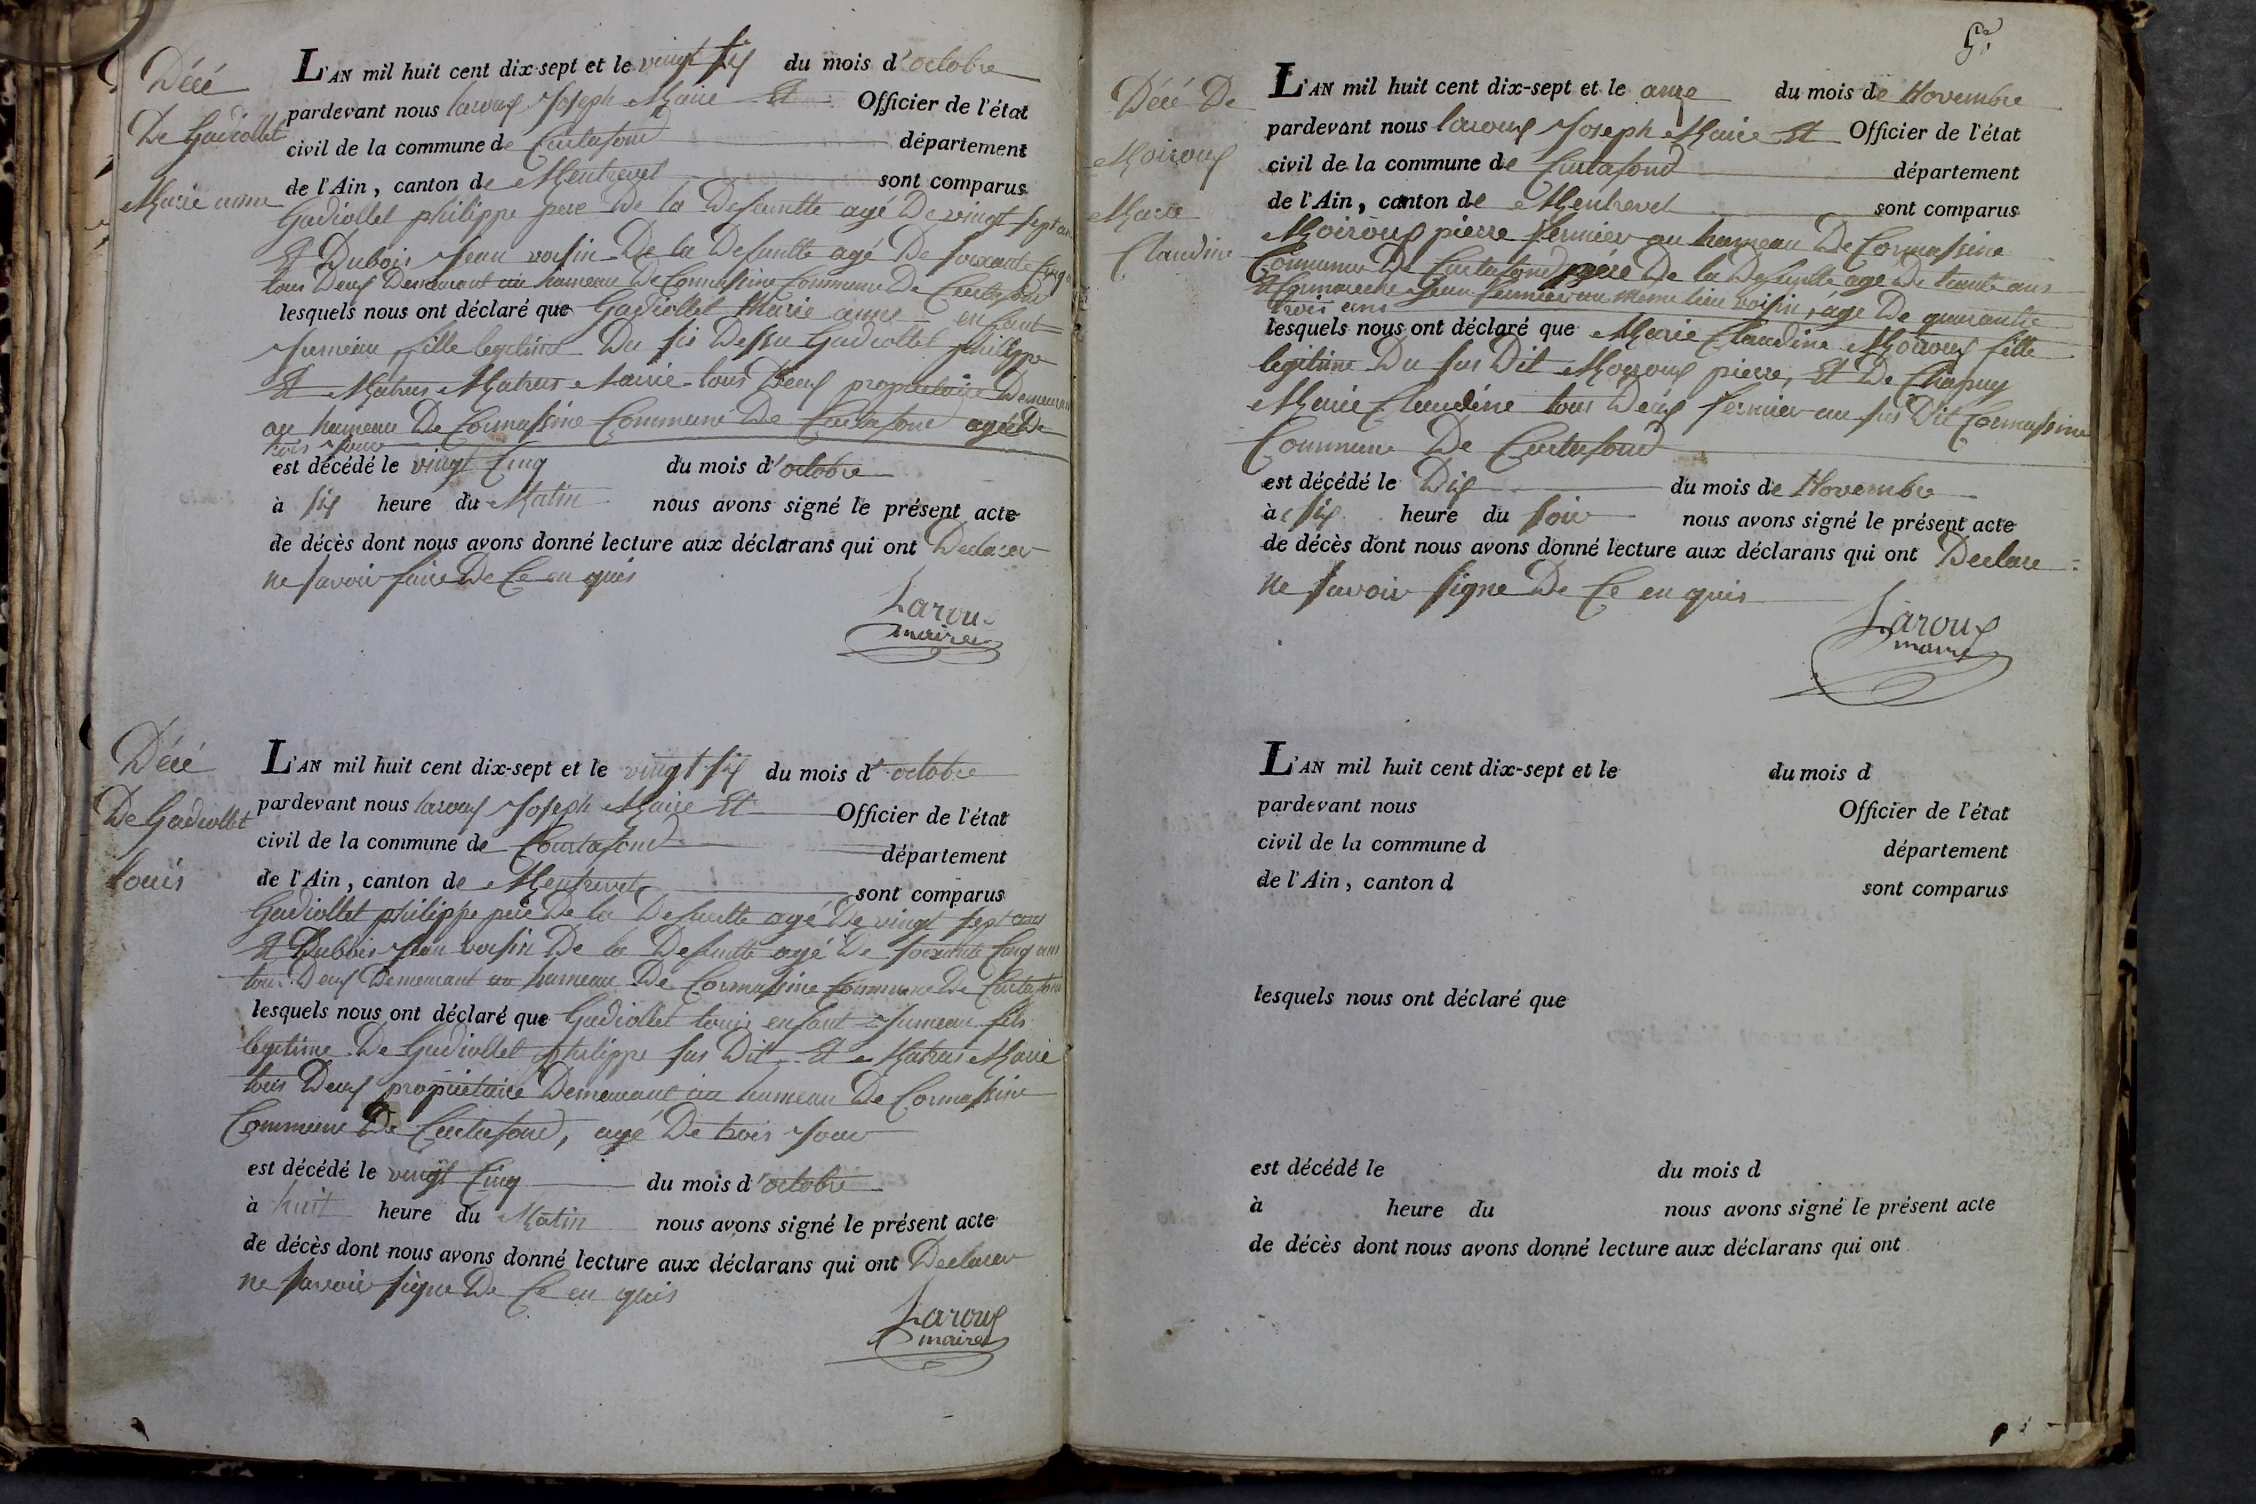 Décé
De Gadiollet
Marie anne
L'AN mil huit cent dix-sept et le vingt six du mois d'octobre
pardevant nous laroux Joseph Maire Et Officier de l'état
civil de la commune de Curtafond département
de l'Ain, canton de Mentrevel sont comparus
Gadiollet philippe pere De la Defuntte agé De vingt sept ans
Et Dubois Jean voisin De la Defuntte agé De soixante Cinq
tous Deux Demeurant au hameau De Cormassine Commune De Curtafond
lesquels nous ont déclaré que Gadiollet Marie anne enfant
Jumeau fille legitime Du sis Dessu Gadiollet philippe
Et Matras Matras Marie tous Deux proprietaire Demeurant
au hameau De Cormassine Commune De Curtafond agée De
trois Jour
est décédé le vingt Cinq du mois d'octobre
à six heure du Matin nous avons signé le présent acte
de décès dont nous avons donné lecture aux déclarans qui ont Declarer
ne savoir faire De Ce en quis
Laroux
maire
Décé
De Gadiollet
louis
L'AN mil huit cent dix-sept et le vingt six du mois d'octobre
pardevant nous laroux Joseph Maire Et Officier de l'état
civil de la commune de Courtafond département
de l'Ain, canton de Mentrevel sont comparus
Gadiollet philippe pere De la Defuntte agé De vingt sept ans
Et Dubois Jean voisin De la Defuntte agé De soixante Cinq ans
tous Deux Demeurant au hameau De Cormassine Commune De Curtafond
lesquels nous ont déclaré que Gadiollet louis enfant Jumeau fils
legitime De Gadiollet philippe sus Dit Et Matras Marie
tous Deux proprietaire Demeurant au hameau De Cormassine
Commune De Curtafond, agé De trois Jour
est décédé le vingt Cinq du mois d'octobre
à huit heure du Matin nous avons signé le présent acte
de décès dont nous avons donné lecture aux déclarans qui ont Declarer
ne savoir signe De Ce en quis
Laroux
maire
Décé De
Moiroux
Marie
Claudine
L'AN mil huit cent dix-sept et le onze du mois de Novembre
pardevant nous laroux Joseph Maire Et Officier de l'état
civil de la commune de Curtafond département
de l'Ain, canton de Mentrevel sont comparus
Moiroux pierre fermier au hameau De Cormassine
Commune De Curtafond père De la Defuntte age De trante ans
Et Jean fermier au meme lieu voisin, agé De quarante
trois ans
lesquels nous ont déclaré que Marie Claudine Moiroux fille
legitime Du sus Dit Moiroux pierre, Et De Chapuy
Marie Claudine tous Deux fermier au sus Dit Cormassine
Commune De Curtafond
est décédé le Dix du mois de Novembre
à six heure du soir nous avons signé le présent acte
de décès dont nous avons donné lecture aux déclarans qui ont Declare
ne savoir signe De Ce en quis
Laroux
maire
L'AN mil huit cent dix-sept et le du mois d
pardevant nous Officier de l'état
civil de la commune d département
de l'Ain, canton d sont comparus
lesquels nous ont déclaré que
est décédé le du mois d
à heure du nous avons signé le présent acte
de décès dont nous avons donné lecture aux déclarans qui ont